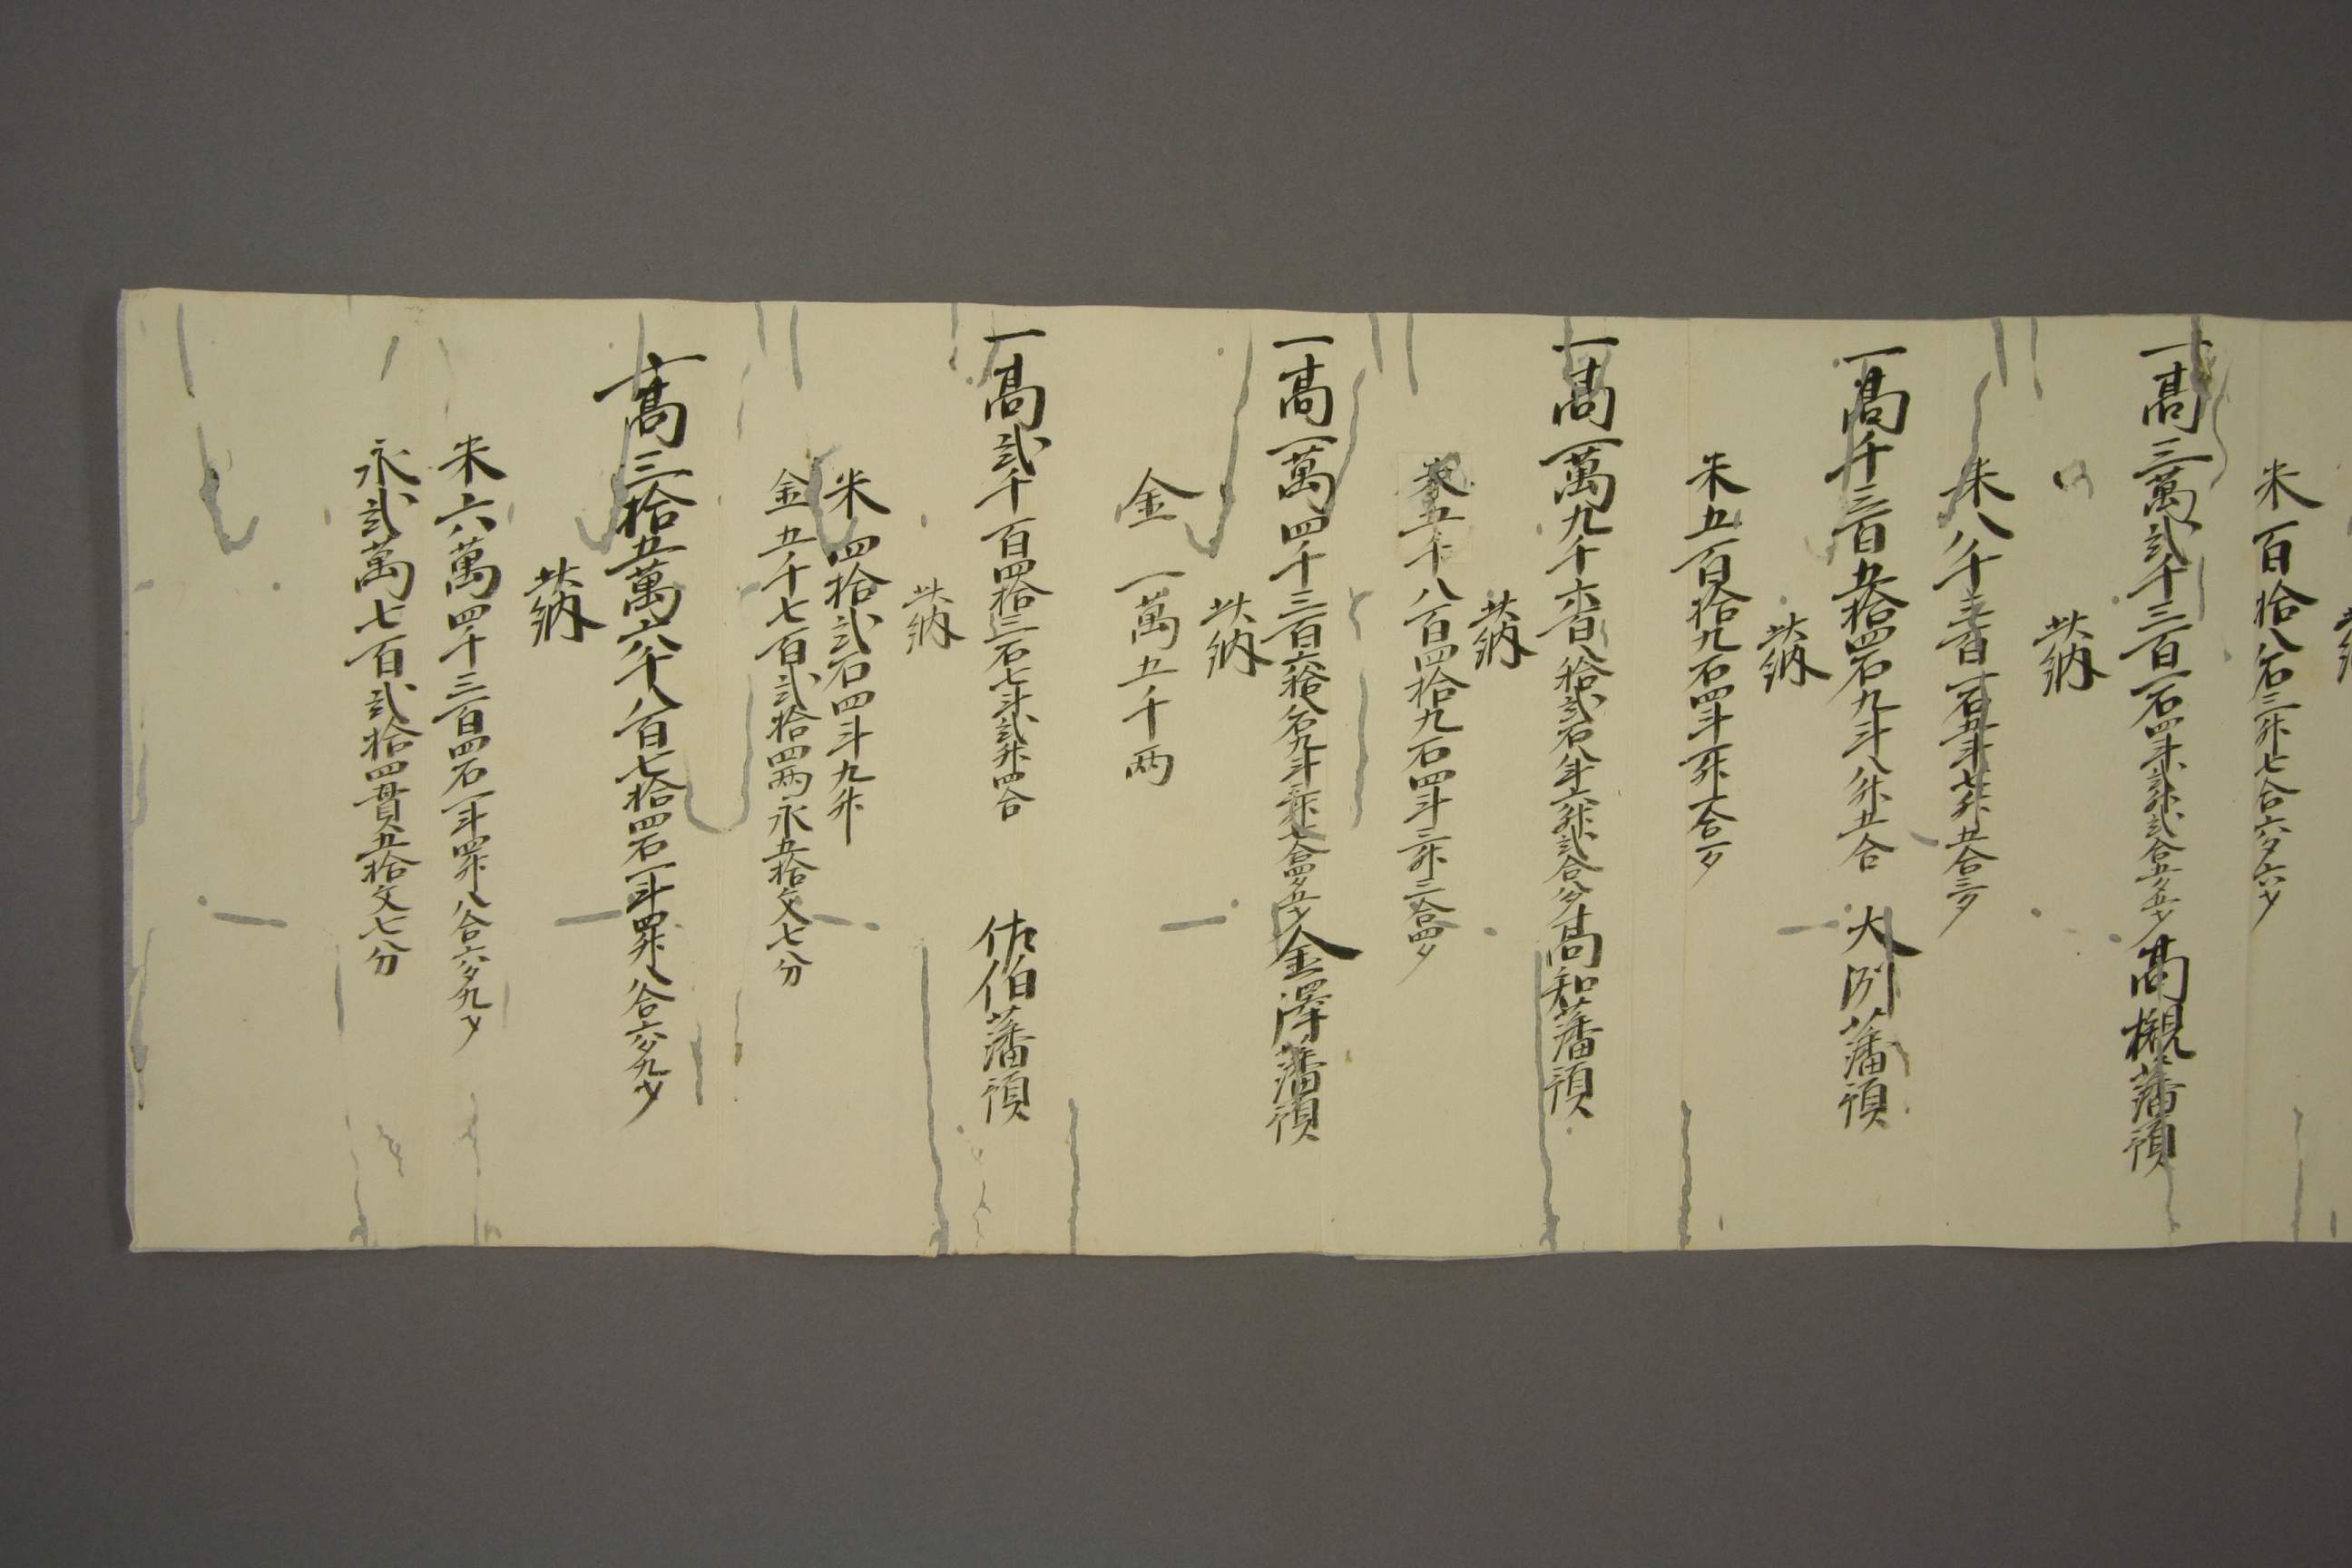 此納
米百拾八石三升七合六夕六才
一高三萬貳千三百一石四斗貳升貳合五夕五才高槻藩預
此納
米八千三百一石五斗七升五合三夕
一高千三百五拾四石九斗八升五合 大洲藩預
此納
米五百拾九石四斗一升一合一夕
一高一萬九千六百八拾貳石八斗六升貳合八夕高知藩預
此納
米五千八百四拾九石四斗三升二合四夕
一高一萬四千三百六拾八石九斗三升七合四夕五才金澤藩預
此納
金 一萬五千両
一高貳千百四拾三石七斗貳升四合 佐伯藩預
此納
米四拾貳石四斗九升
金五千七百貳拾四両永五拾文七分
高三拾五萬六千八百七拾四石一斗四升八合六夕九才
此納
米六萬四千三百四石一斗四升八合六夕九才
永貳萬七百貳拾四貫五拾文七分